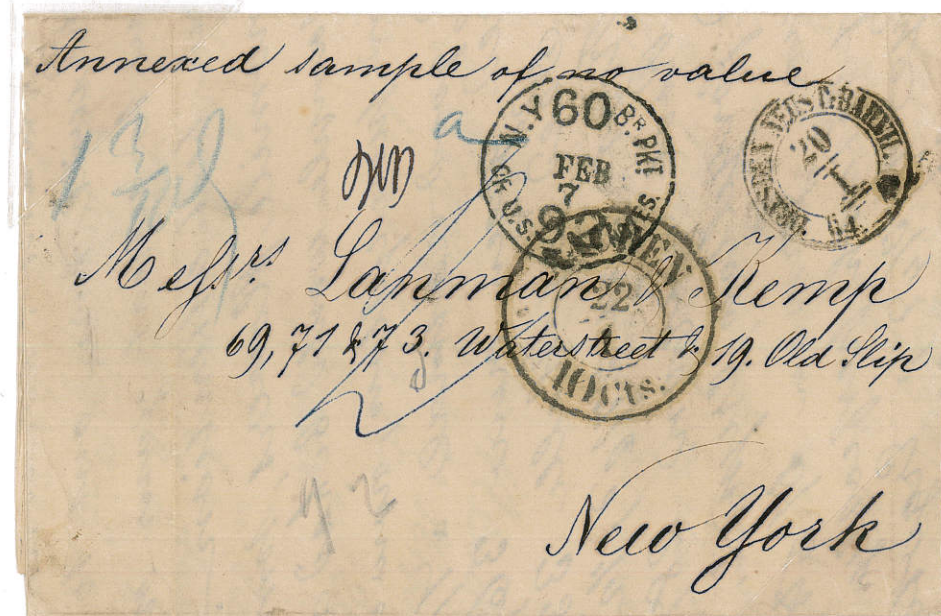 Annexed sample of no value
N.Y. 60 BR. PKT.
FEB
7
OR U.S. 92 NOTES
DRESDEN NEUST. BAHNH.
20
I
64
22
10 Cts.
Messrs. Lanman & Kemp
69, 71 & 73. Waterstreet & 19. Old Slip
92
New York